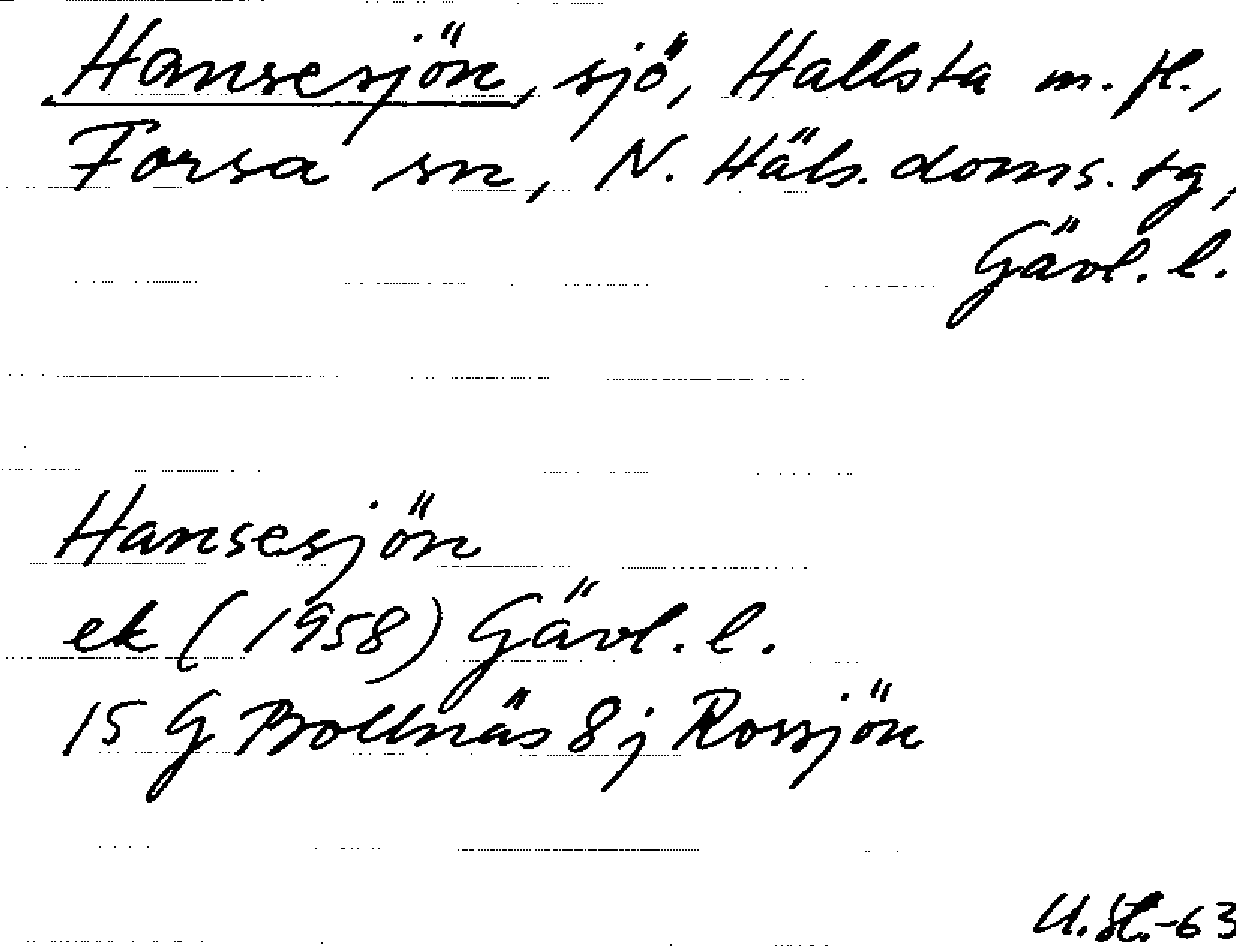 Hansesjön, sjö, Hallsta m. fl.,
Forsa sn, N. Häls. doms. tg,
Gävl. l.
Hansesjön
ek (1958) Gävl. l.
15 G Bollnäs 8 j Rossjön
U. Hl.-63